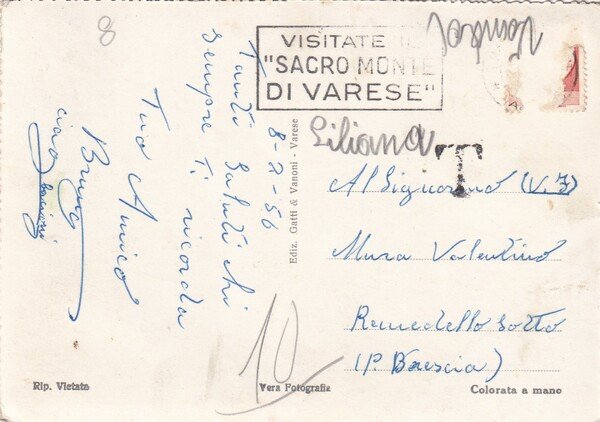 8
VISITATE IL
"SACRO MONTE
DI VARESE"
Liliana
T
8-2-56
Tanti Saluti chi
sempre Ti ricorda
Tuo Amico
Bruno
ciao
Ediz. Gatti & Vanoni - Varese
Al Signorino (V. J)
Mura Valentino
Remedello Sotto
(P. Brescia)
10
Rip. Vietata
Vera Fotografia
Colorata a mano